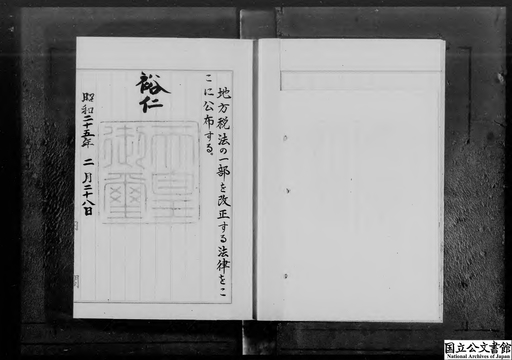 地方税法の一部を改正する法律をこ
こに公布する。
裕仁
天皇
御璽
昭和二十五年 二月二十八日
国立公文書館
National Archives of Japan